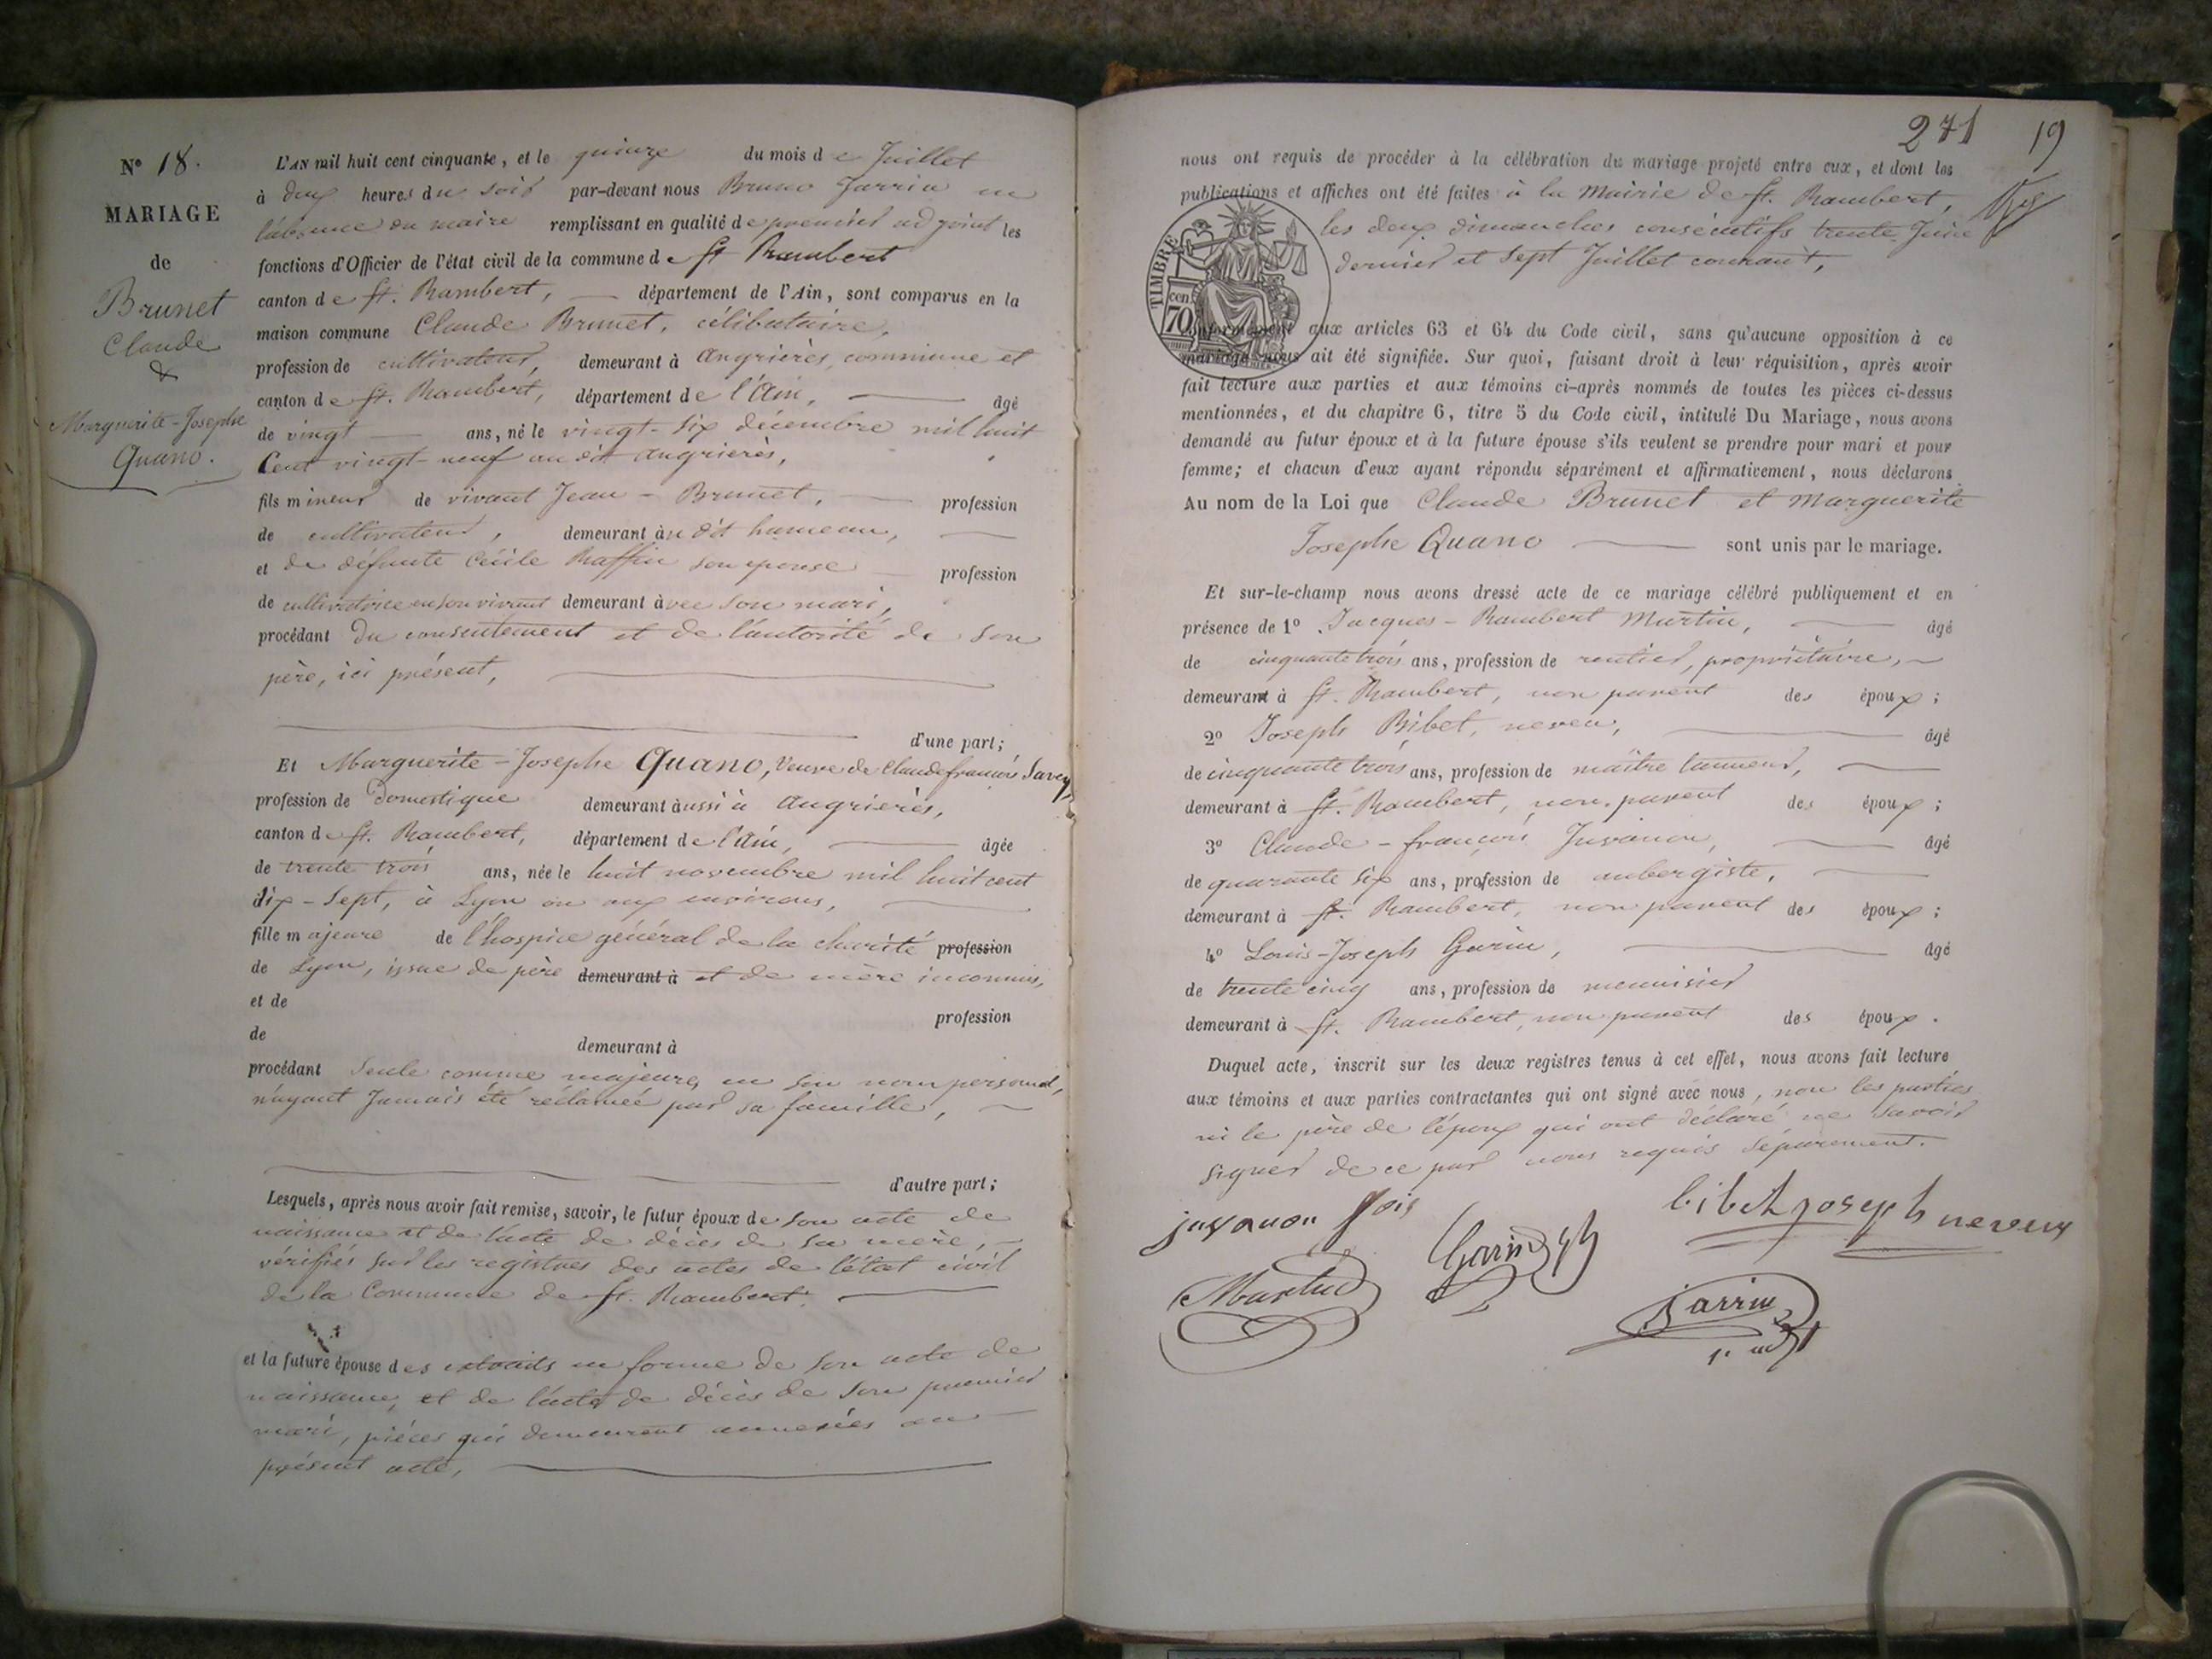 N° 18.
MARIAGE
de
Brunet
Claude
&
Marguerite-Josephe
Quano.
L'AN mil huit cent cinquante, et le quinze du mois de Juillet
à deux heures du soir par-devant nous Bruno Jarrin en
l'absence du maire remplissant en qualité de premier adjoint les
fonctions d'Officier de l'état civil de la commune de St Rambert
canton de St. Rambert, département de l'Ain, sont comparus en la
maison commune Claude Brunet, célibataire,
profession de cultivateur, demeurant à Angrières, commune et
canton de St. Rambert, département de l'Ain, âgé
de vingt ans, né le vingt-six décembre mil huit
Cent vingt-neuf au dit Angrières,
fils mineur de vivant Jean-Brunet, profession
de cultivateur, demeurant au dit hameau,
et de défunte Cécile Raffin son épouse profession
de cultivatrice en son vivant demeurant avec son mari,
procédant Du consentement et de l'autorité de son
père, ici présent,
d'une part;
Et Marguerite-Josephe Quano, Veuve de Claude françois Savey,
profession de Domestique demeurant aussi à Angrières,
canton de St. Rambert, département de l'Ain, âgée
de trente trois ans, née le huit novembre mil huit cent
dix-Sept, à Lyon ou aux environs,
fille majeure de l'hospice général de la charité profession
de Lyon, issue de père demeurant à et de mère inconnus,
et de profession
de demeurant à
procédant Seule comme majeure, en son nom personnel,
n'ayant Jamais été réclamée par sa famille,
d'autre part;
Lesquels, après nous avoir fait remise, savoir, le futur époux de son acte de
naissance et de l'acte de décès de sa mère,
vérifiés sur les registres des actes de l'état civil
de la Commune de St. Rambert.
et la future épouse des extraits en forme de son acte de
naissance, et de l'acte de décès de son premier
mari, pièces qui demeurent annexées au
présent acte,
271 19
nous ont requis de procéder à la célébration du mariage projeté entre eux, et dont les
publications et affiches ont été faites à la Mairie de St. Rambert,
les deux dimanches consécutifs trente Juin
dernier et sept Juillet courant,
TIMBRE
cen
70
conformément aux articles 63 et 64 du Code civil, sans qu'aucune opposition à ce
mariage nous ait été signifiée. Sur quoi, faisant droit à leur réquisition, après avoir
fait lecture aux parties et aux témoins ci-après nommés de toutes les pièces ci-dessus
mentionnées, et du chapitre 6, titre 5 du Code civil, intitulé Du Mariage, nous avons
demandé au futur époux et à la future épouse s'ils veulent se prendre pour mari et pour
femme; et chacun d'eux ayant répondu séparément et affirmativement, nous déclarons
Au nom de la Loi que Claude Brunet et Marguerite
Josephe Quano sont unis par le mariage.
Et sur-le-champ nous avons dressé acte de ce mariage célébré publiquement et en
présence de 1° Jacques-Rambert Martin, âgé
de cinquante trois ans, profession de rentier, propriétaire,
demeurant à St. Rambert, non parent des époux;
2° Joseph Bibet, neveu, âgé
de cinquante trois ans, profession de maître tanneur,
demeurant à St. Rambert, non parent des époux;
3° Claude-françois Juvanon, âgé
de quarante six ans, profession de aubergiste,
demeurant à St. Rambert, non parent des époux;
4° Louis-Joseph Garin, âgé
de trente cinq ans, profession de menuisier
demeurant à St. Rambert, non parent des époux.
Duquel acte, inscrit sur les deux registres tenus à cet effet, nous avons fait lecture
aux témoins et aux parties contractantes qui ont signé avec nous, non les parties
ni le père de l'époux qui ont déclaré ne savoir
signer de ce par nous requis séparément.
juvanon fois bibet joseph neveux
Martin Garin
Jarrin
1er adj